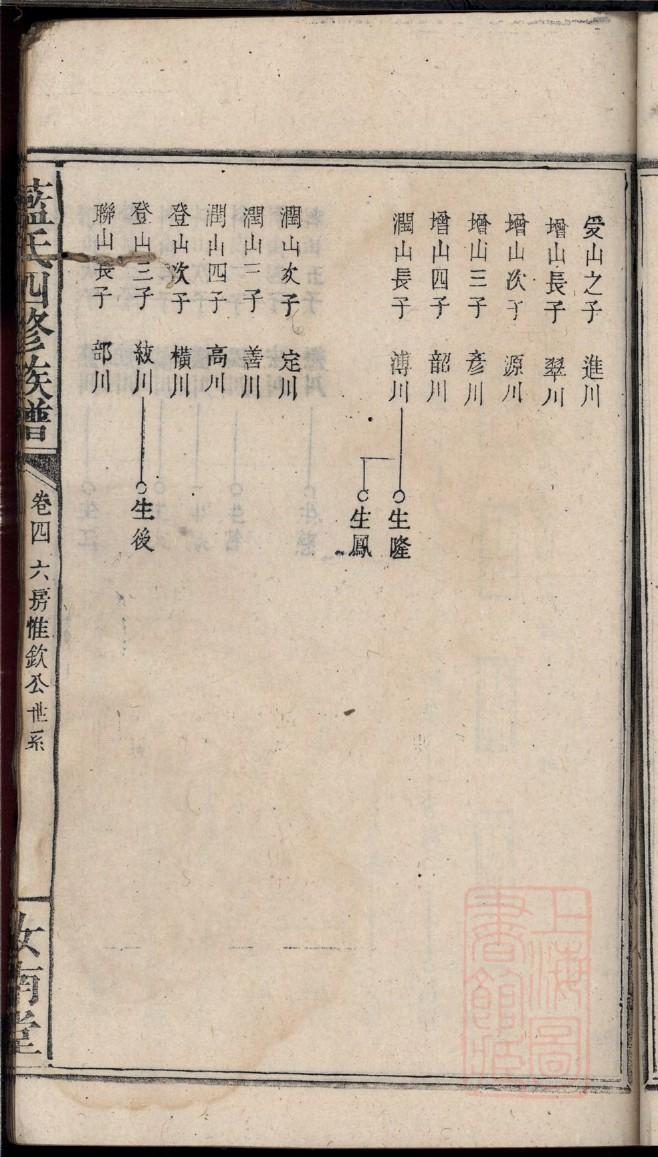 受山之子 進川
增山長子 翠川
增山次子 源川
增山三子 彥川
增山四子 韶川
潤山長子 溥川 生隆
生鳳
潤山次子 定川
潤山三子 善川
潤山四子 高川
登山次子 橫川
登山三子 紋川 生後
聯山長子 部川
藍氏四修族譜
卷四 六房惟欽公世系
汝南堂
上海圖書館藏